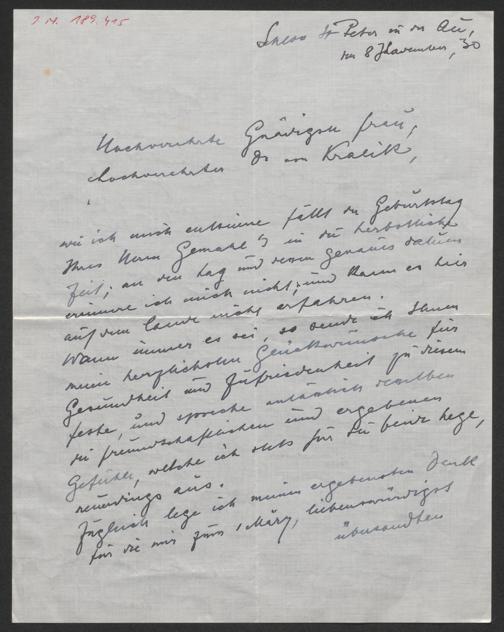 J.N. 189.415
Schloss St Peter in der Au,
den 8 November, 30
Hochverehrte Gnädigste Frau,
Hochverehrter Dr von Kralik,
wie ich mich entsinne fällt der Geburtstag
Ihres Herrn Gemahl's in die herbstliche
Zeit; an den Tag und dessen genaues Datum
erinnere ich mich nicht, und kann es hier
auf dem Lande nicht erfahren.
Wann immer es sei, so sende ich Ihnen
meine herzlichsten Glückwünsche für
Gesundheit und Zufriedenheit zu diesem
Feste, und spreche anlässlich desselben
die freundschaftlichen und ergebenen
Gefühle, welche ich stets für Sie beide hege,
neuerdings aus.
Zugleich lege ich meinen ergebensten Dank
für die mir zum 1 März, liebenswürdigst
übersandten